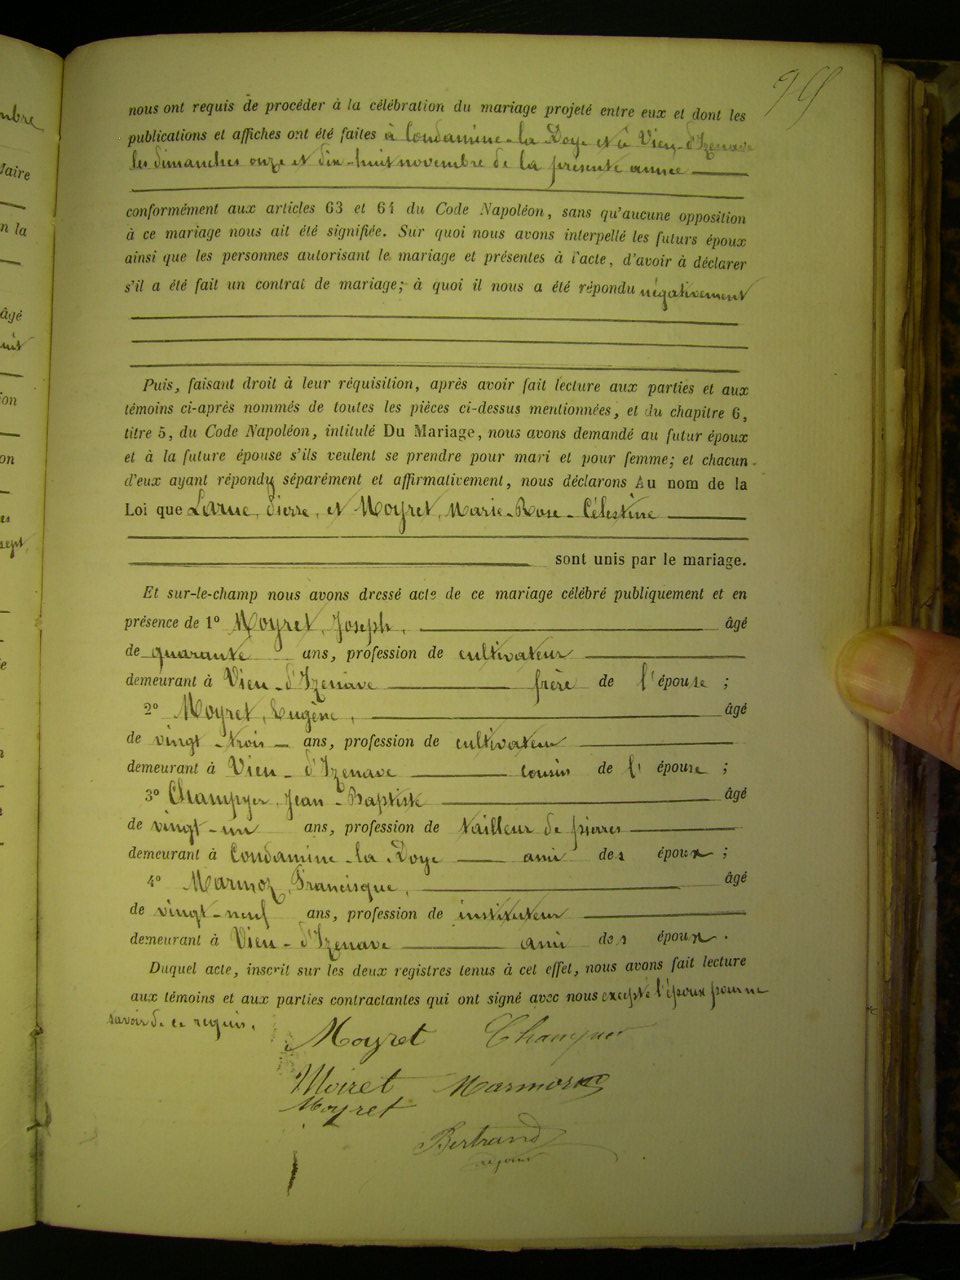 nous ont requis de procéder à la célébration du mariage projeté entre eux et dont les
publications et affiches ont été faites à Condamine-la Doye et à Vieu-d'Izenave
les dimanches onze et dix-huit novembre de la présente année
conformément aux articles 63 et 64 du Code Napoléon, sans qu'aucune opposition
à ce mariage nous ait été signifiée. Sur quoi nous avons interpellé les futurs époux
ainsi que les personnes autorisant le mariage et présentes à l'acte, d'avoir à déclarer
s'il a été fait un contrat de mariage; à quoi il nous a été répondu négativement
Puis, faisant droit à leur réquisition, après avoir fait lecture aux parties et aux
témoins ci-après nommés de toutes les pièces ci-dessus mentionnées, et du chapitre 6,
titre 5, du Code Napoléon, intitulé Du Mariage, nous avons demandé au futur époux
et à la future épouse s'ils veulent se prendre pour mari et pour femme; et chacun
d'eux ayant répondu séparément et affirmativement, nous déclarons Au nom de la
Loi que Larue, Pierre, et Moyret, Marie-Rose-Célestine
sont unis par le mariage.
Et sur-le-champ nous avons dressé acte de ce mariage célébré publiquement et en
présence de 1° Moyret, Joseph, âgé
de quarante ans, profession de cultivateur
demeurant à Vieu-d'Izenave frère de l'épouse ;
2° Moyret, Eugène, âgé
de vingt-trois ans, profession de cultivateur
demeurant à Vieu-d'Izenave cousin de l' épouse ;
3° Champyer, Jean-Baptiste âgé
de vingt-un ans, profession de tailleur de pierres
demeurant à Condamine-la Doye ami des époux ;
4° Marmoz, Francisque, âgé
de vingt-neuf ans, profession de instituteur
demeurant à Vieu-d'Izenave ami des époux.
Duquel acte, inscrit sur les deux registres tenus à cet effet, nous avons fait lecture
aux témoins et aux parties contractantes qui ont signé avec nous excepté l'époux pour ne
savoir de ce requis.
Moyret
Moiret Marmoz
Moyret
Bertrand